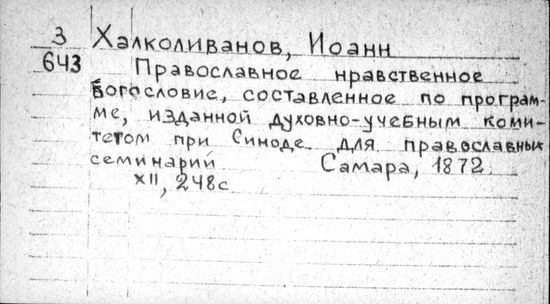 3 Халколиванов, Иоанн
643 Православное нравственное
богословие, составленное по програм-
ме, изданной духовно-учебным коми-
тетом при Синоде для православных
семинарий Самара, 1872.
XII, 248с